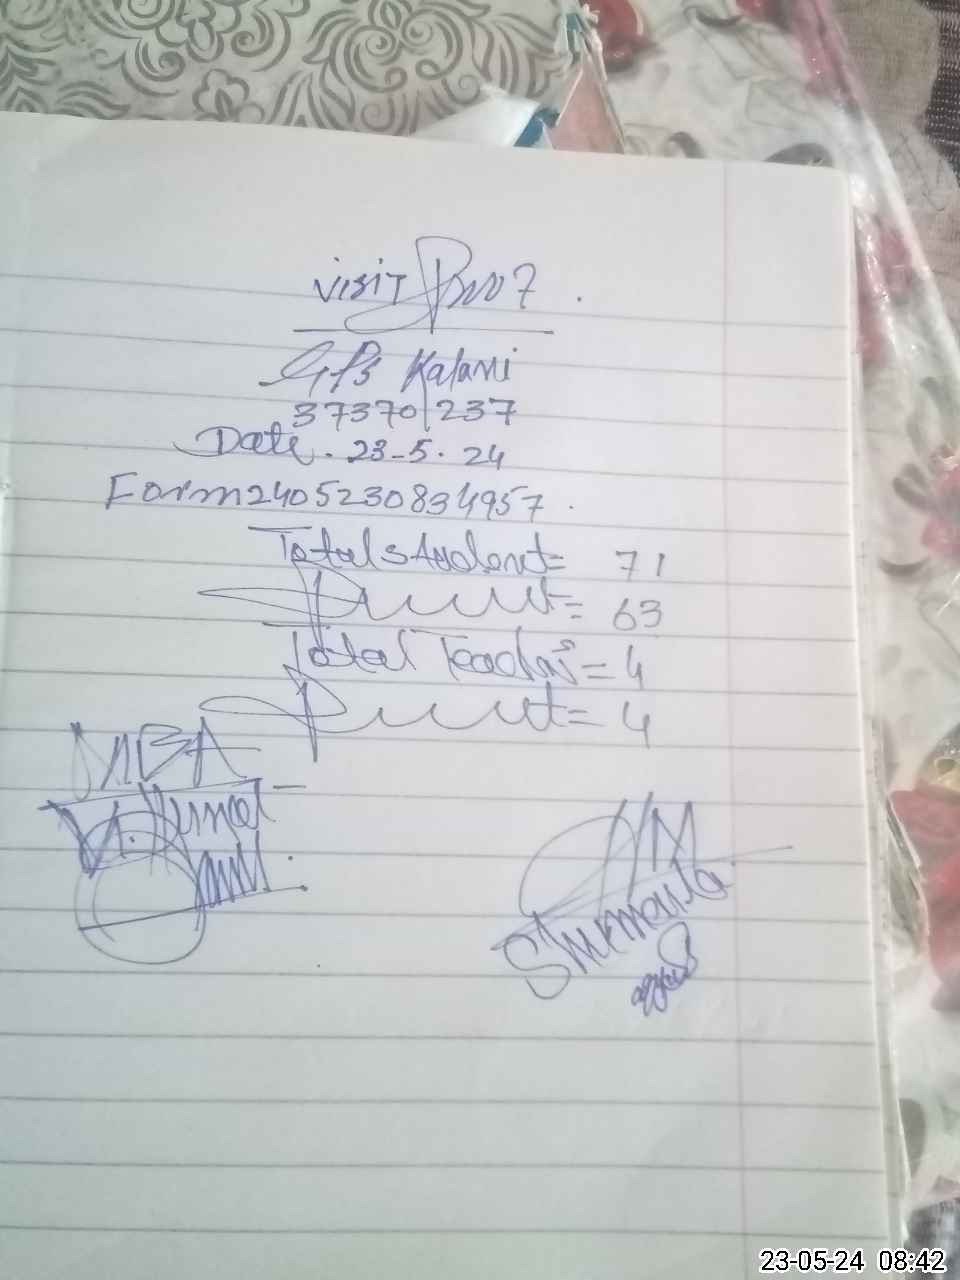 Visit Proof.
GPS Kalani
37370237
Date. 23-5.24
Form2405230834957.
Total Student = 71
Present = 63
Total Teacher = 4
Present = 4
MEA
HM
23-05-24 08:42